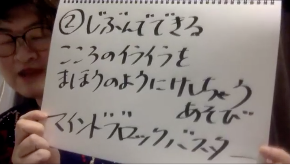 ②じぶんでできる
こころのイライラを
まほうのようにけしちゃう
あそび
マインドブロックバスター